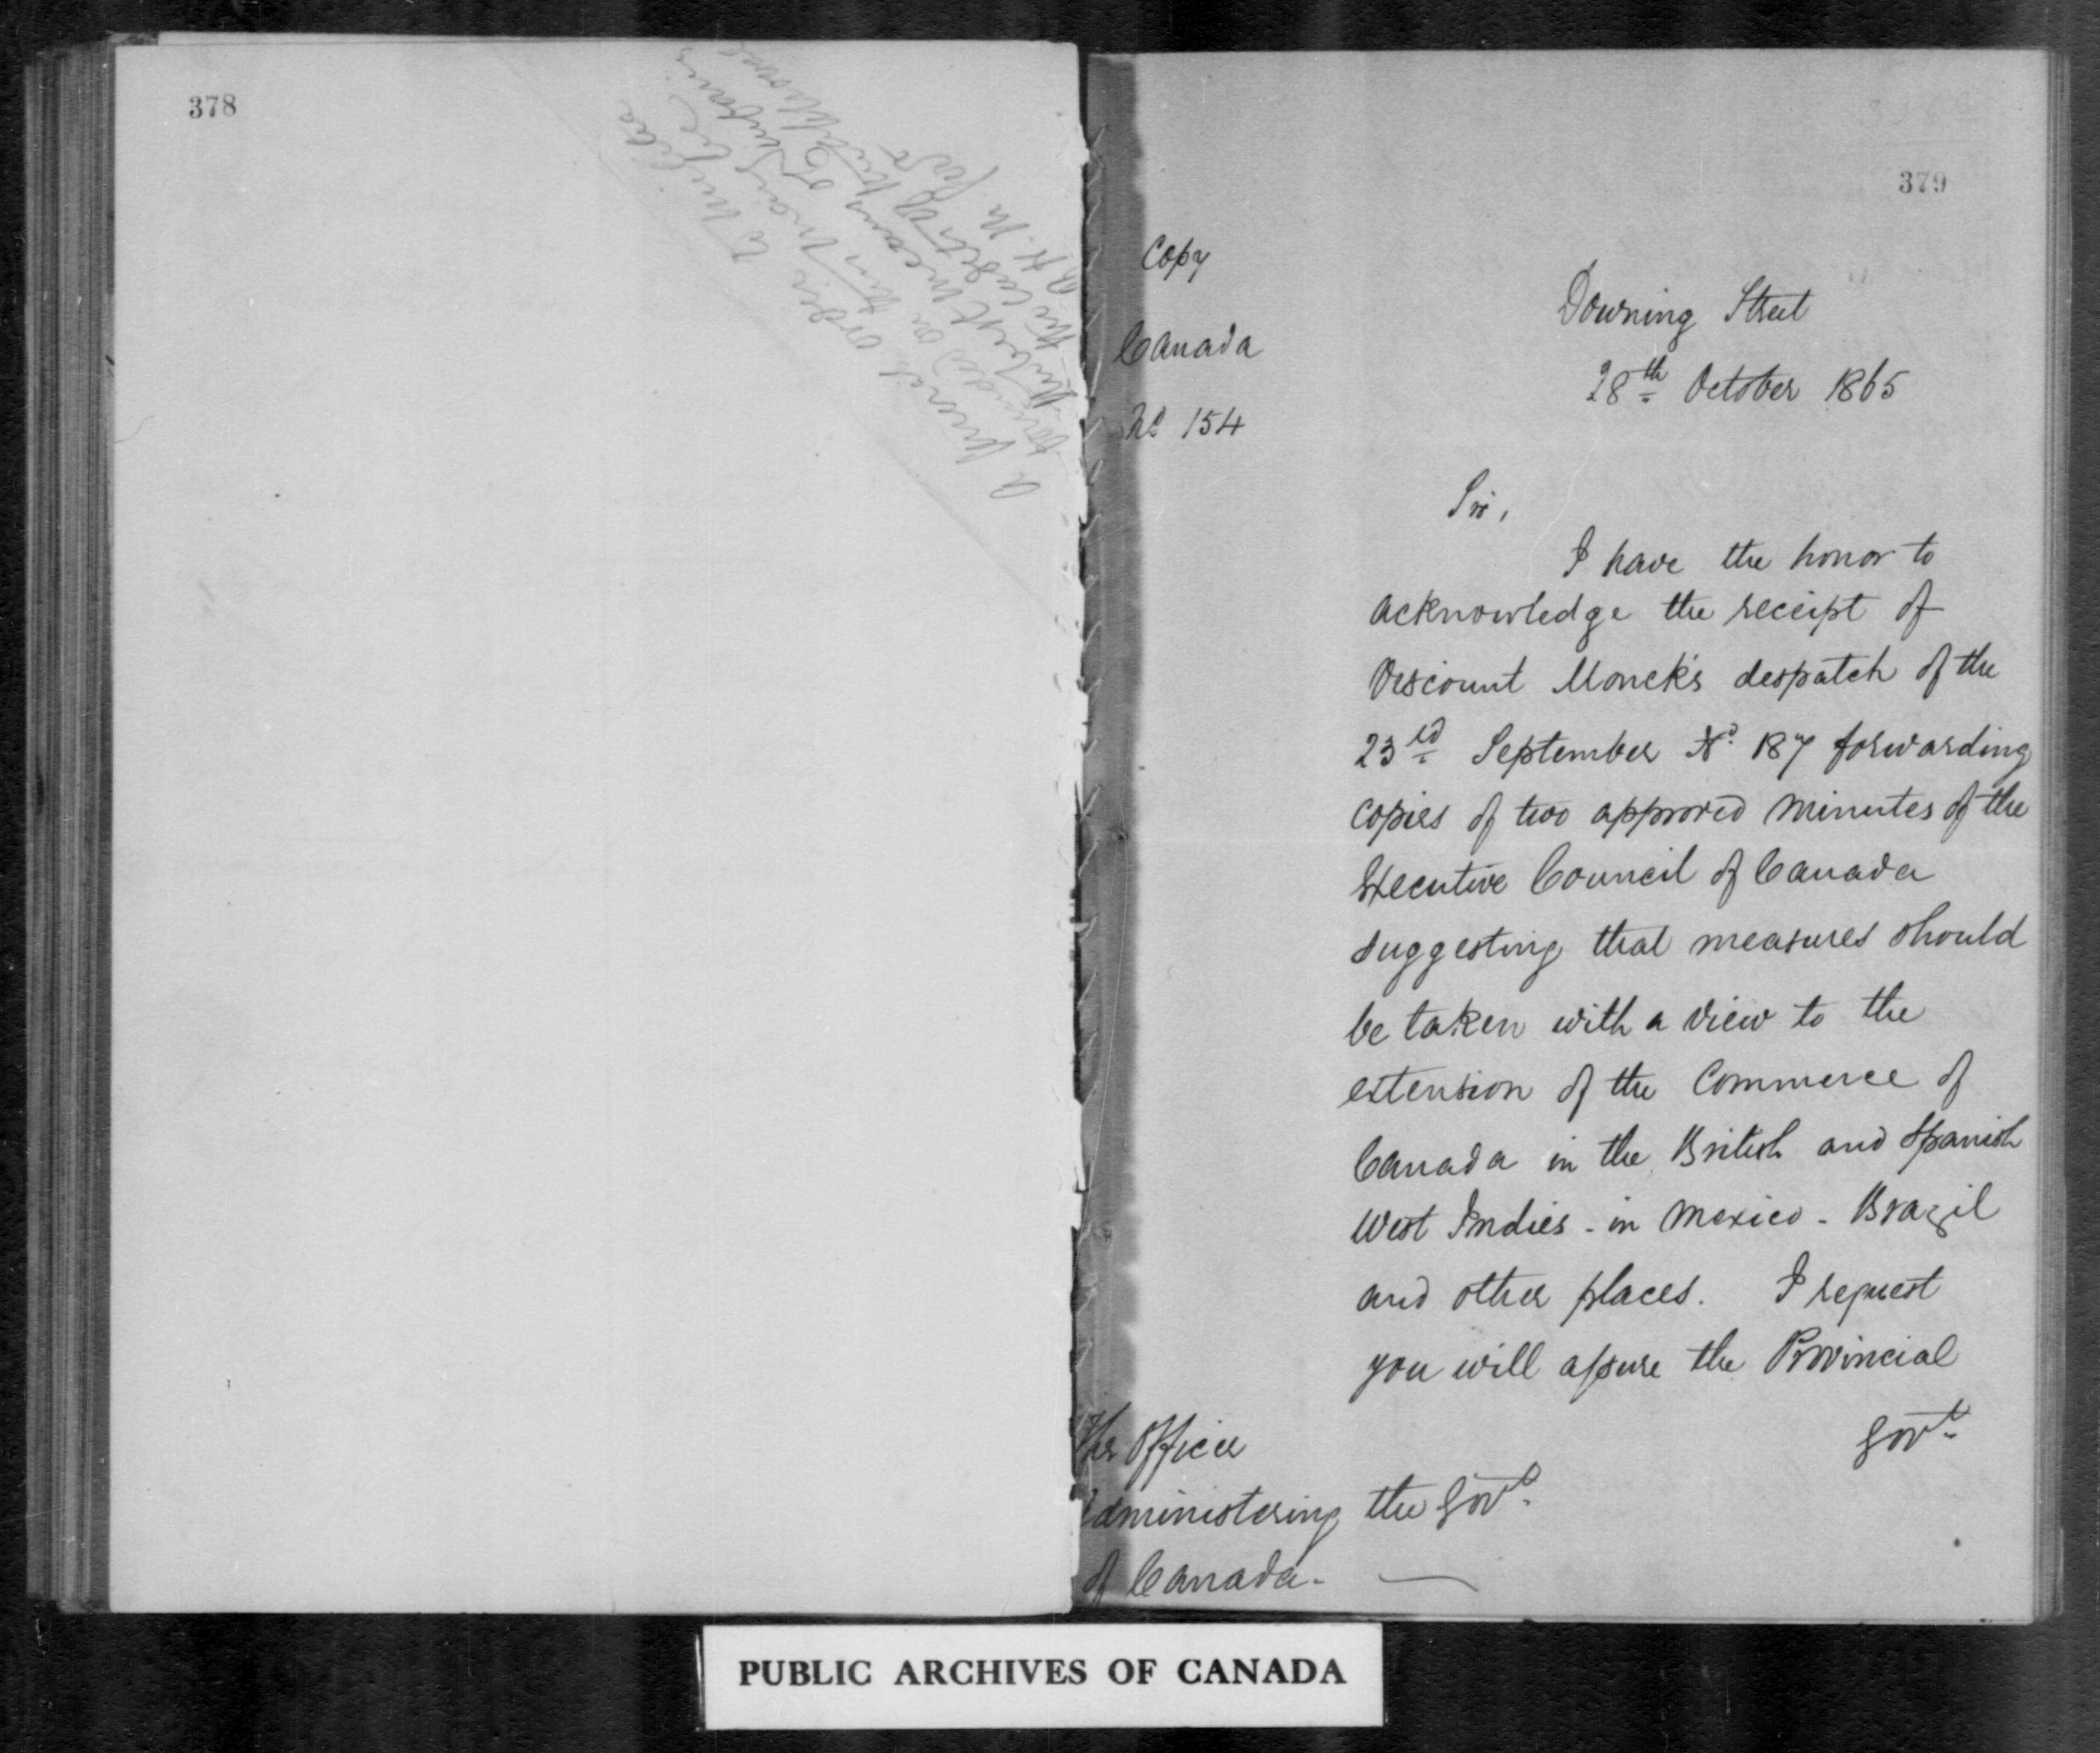 378
379
Copy
Canada
No 154
Downing Street
28th October 1865
Sir,
I have the honor to
acknowledge the receipt of
Viscount Monck's despatch of the
23rd September No. 187 forwarding
copies of two approved minutes of the
Executive Council of Canada
suggesting that measures should
be taken with a view to the
extension of the Commerce of
Canada in the British and Spanish
West Indies - in Mexico - Brazil
and other places. I request
you will assure the Provincial
Govt.
The Officer
Administering the Govt.
of Canada.
PUBLIC ARCHIVES OF CANADA